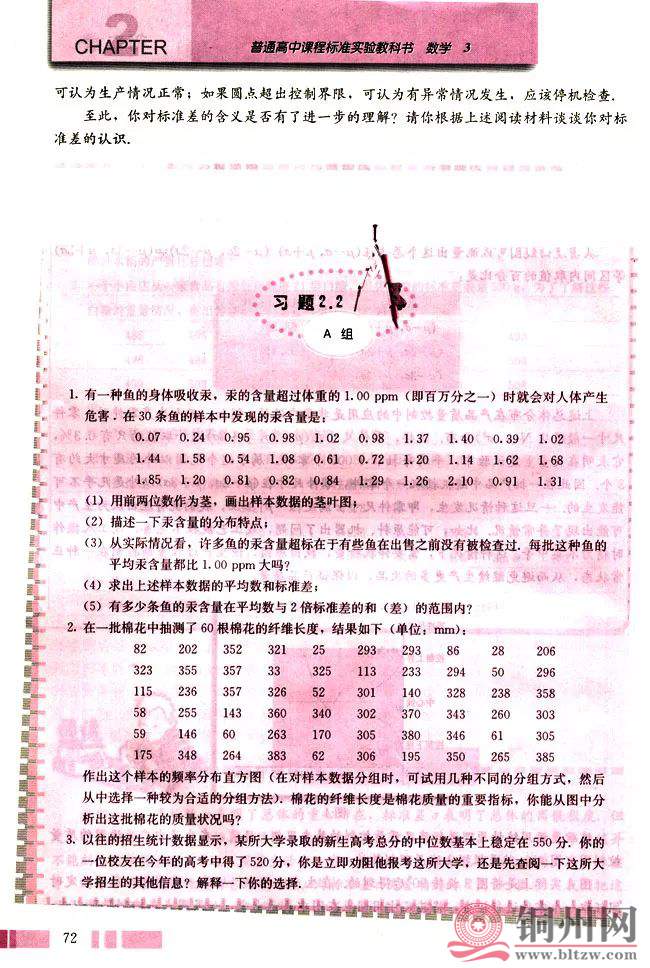 2
CHAPTER
普通高中课程标准实验教科书 数学 3
可认为生产情况正常；如果圆点超出控制界限，可认为有异常情况发生，应该停机检查.
至此，你对标准差的含义是否有了进一步的理解？请你根据上述阅读材料谈谈你对标
准差的认识.
习题2.2
A 组
1. 有一种鱼的身体吸收汞，汞的含量超过体重的 1.00 ppm（即百万分之一）时就会对人体产生
危害. 在 30 条鱼的样本中发现的汞含量是：
0.07 0.24 0.95 0.98 1.02 0.98 1.37 1.40 0.39 1.02
1.44 1.58 0.54 1.08 0.61 0.72 1.20 1.14 1.62 1.68
1.85 1.20 0.81 0.82 0.84 1.29 1.26 2.10 0.91 1.31
（1）用前两位数作为茎，画出样本数据的茎叶图；
（2）描述一下汞含量的分布特点；
（3）从实际情况看，许多鱼的汞含量超标在于有些鱼在出售之前没有被检查过. 每批这种鱼的
平均汞含量都比 1.00 ppm 大吗？
（4）求出上述样本数据的平均数和标准差；
（5）有多少条鱼的汞含量在平均数与 2 倍标准差的和（差）的范围内？
2. 在一批棉花中抽测了 60 根棉花的纤维长度，结果如下（单位：mm）：
82 202 352 321 25 293 293 86 28 206
323 355 357 33 325 113 233 294 50 296
115 236 357 326 52 301 140 328 238 358
58 255 143 360 340 302 370 343 260 303
59 146 60 263 170 305 380 346 61 305
175 348 264 383 62 306 195 350 265 385
作出这个样本的频率分布直方图（在对样本数据分组时，可试用几种不同的分组方式，然后
从中选择一种较为合适的分组方法）. 棉花的纤维长度是棉花质量的重要指标，你能从图中分
析出这批棉花的质量状况吗？
3. 以往的招生统计数据显示，某所大学录取的新生高考总分的中位数基本上稳定在 550 分. 你的
一位校友在今年的高考中得了 520 分，你是立即劝阻他报考这所大学，还是先查阅一下这所大
学招生的其他信息？解释一下你的选择.
72
铜州网
www.bltzw.com